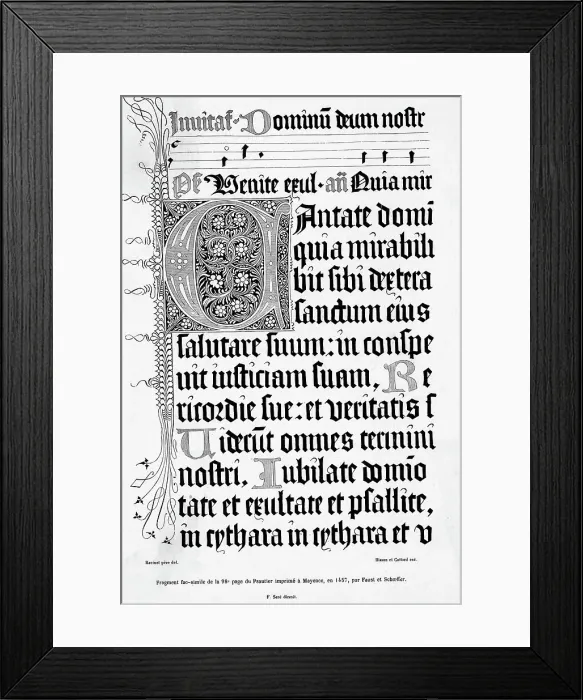 Inuitať· Dominū deum nostr
Ps̄ Venite exul· an̄ Quia mir
CAntate domī
quia mirabili
bit sibi dextera
sanctum eius
salutare suum: in conspe
uit iusticiam suam, Re
ricordie sue: et veritatis s
Uiderūt omnes termini
nostri, Iubilate domīo
tate et exultate et psallite,
in cythara in cythara et v
Racinet père del.
Bisson et Cottard exc.
Fragment fac-simile de la 98e page du Psautier imprimé à Mayence, en 1457, par Faust et Schœffer.
F Seré direxit.